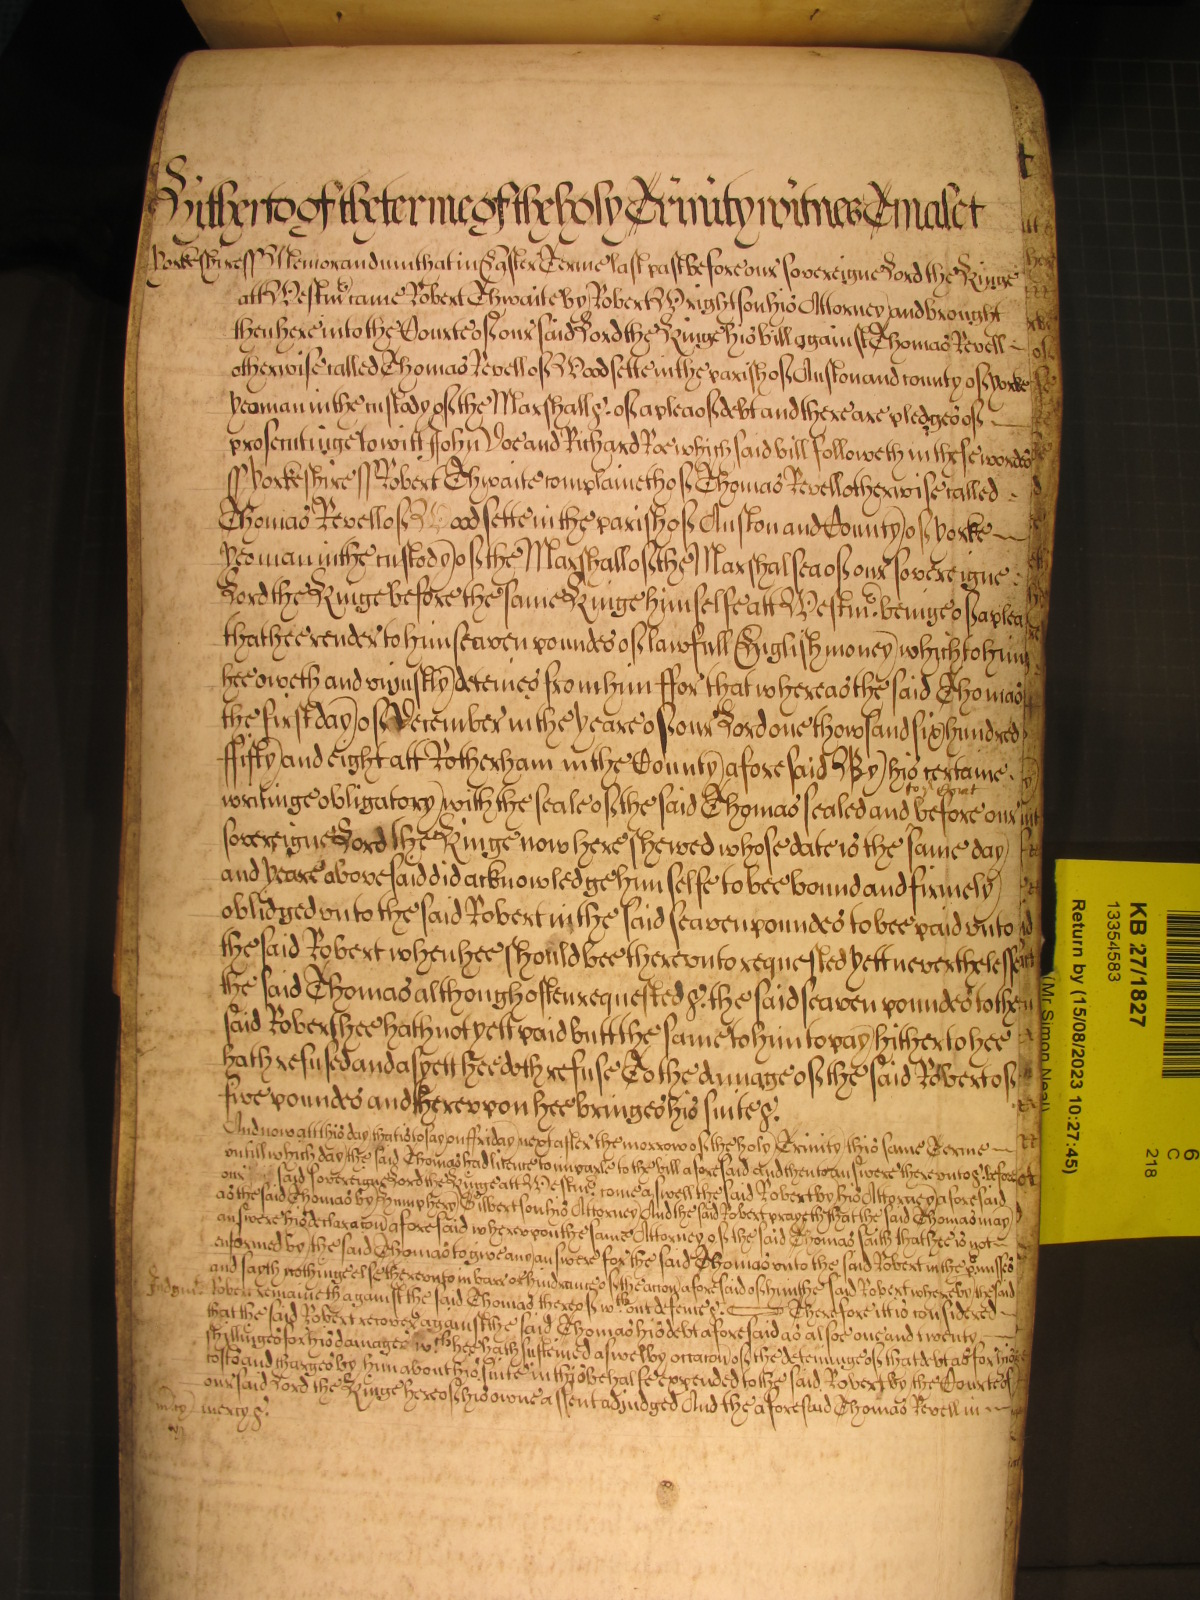 Hitherto of the terme of the holy Trinity witnes T malet
Yorkeshire ss Memorandum that in Easter Terme last past before our sovereigne Lord the Kinge
att Westm̄ came Robert Thwaite by Robert Wrightson his Attorney and brought
then here into the Courte of our said Lord the Kinge his bill against Thomas Revell
otherwise called Thomas Revell of Woodsette in the parish of Anston and county of Yorke
yeoman in the custody of the Marshall &c of a plea of debt and there are pledges of
prosecutinge to witt John Doe and Richard Roe which said bill followeth in these wordes
ss Yorkeshire ss Robert Thwaite complaineth of Thomas Revell otherwise called
Thomas Revell of Woodsette in the parish of Anston and County of Yorke
yeoman in the custody of the Marshall of the Marshalsea of our sovereigne
Lord the Kinge before the same Kinge himselfe att Westm̄ beinge of a plea
that hee render to him seaven poundes of lawfull English money which to him
hee oweth and uniustly deteines from him ffor that whereas the said Thomas
the first day of December in the yeare of our Lord one thowsand six hundred
ffifty and eight att Rotherham in the County aforesaid By his certaine
writinge obligatory with the seale of the said Thomas sealed and before our
sovereigne Lord the Kinge now here shewed whose date is the same day
and yeare abovesaid did acknowledge himselfe to bee bound and firmely
oblidged unto the said Robert in the said seaven poundes to bee paid unto
the said Robert when hee should bee thereunto requested yett neverthelesse
the said Thomas although often requested &c the said seaven poundes to the
said Robert hee hath not yett paid butt the same to him to pay hitherto hee
hath refused and as yett hee doth refuse To the damage of the said Robert of
five poundes and thereupon hee bringes his suite &c
And now att this day that is to say on ffriday next after the morrow of the holy Trinity this same Terme
untill which day the said Thomas had licence to imparle to the bill aforesaid and then to answere thereunto &c before
our said sovereigne Lord the Kinge att Westm̄ come aswell the said Robert by his Attorney aforesaid
as the said Thomas by Humphery Gilbertson his Attorney And the said Robert prayeth that the said Thomas may
answere his declaracon aforesaid whereupon the same Attorney of the said Thomas saith that hee is not
enformed by the said Thomas to give any answere for the said Thomas unto the said Robert in the p̄misses
and sayth nothinge else thereunto in barr or hindrance of the accon aforesaid of him the said Robert whereby the said
Judgmt Robert remaineth against the said Thomas thereof wthout defence &c Therefore itt is considered
that the said Robert recover against the said Thomas his debt aforesaid as alsoe one and twenty
shillinges for his damages wch hee hath susteined aswell by occacon of the deteininge of that debt as for his
costs and charges by him about his suite in this behalfe expended to the said Robert by the Courte of
our said Lord the Kinge here of his owne assent adjudged And the aforesaid Thomas Revell in
mercy mercy &c
KB 27/1827
13354583
Return by (15/08/2023 10:27:45)
(Mr Simon Neal)
6
C
218